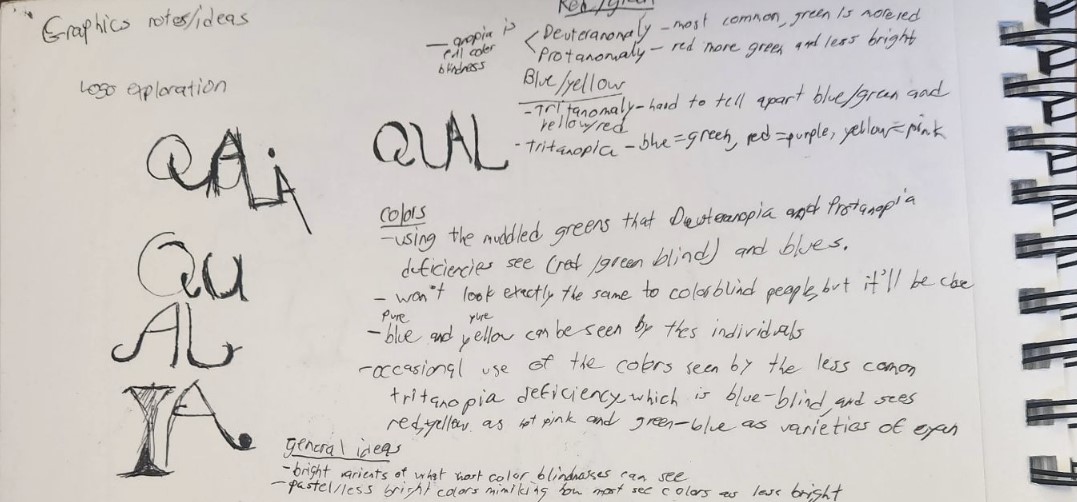 Graphics notes/ideas
Logo exploration
QUALiA
QU
AL
IA
QUAL
Red/green
—anopia is
full color
blindness
Deuteranomaly - most common, green is more red
Protanomaly - red more green and less bright
Blue/yellow
-Tritanomaly - hard to tell apart blue/green and
yellow/red
-tritanopia - blue=green, red=purple, yellow=pink
colors
-using the muddled greens that Deuteranopia and Protanopia
deficiencies see (red/green blind) and blues.
- won't look exactly the same to colorblind people, but it'll be close
pure pure
-blue and yellow can be seen by thes individuals
-occasional use of the colors seen by the less comon
tritanopia deficiency, which is blue-blind, and sees
red, yellow as hot pink and green-blue as varieties of cyan
general ideas
-bright varients of what most color blindnesses can see
-pastel/less bright colors mimiking how most see colors as less bright